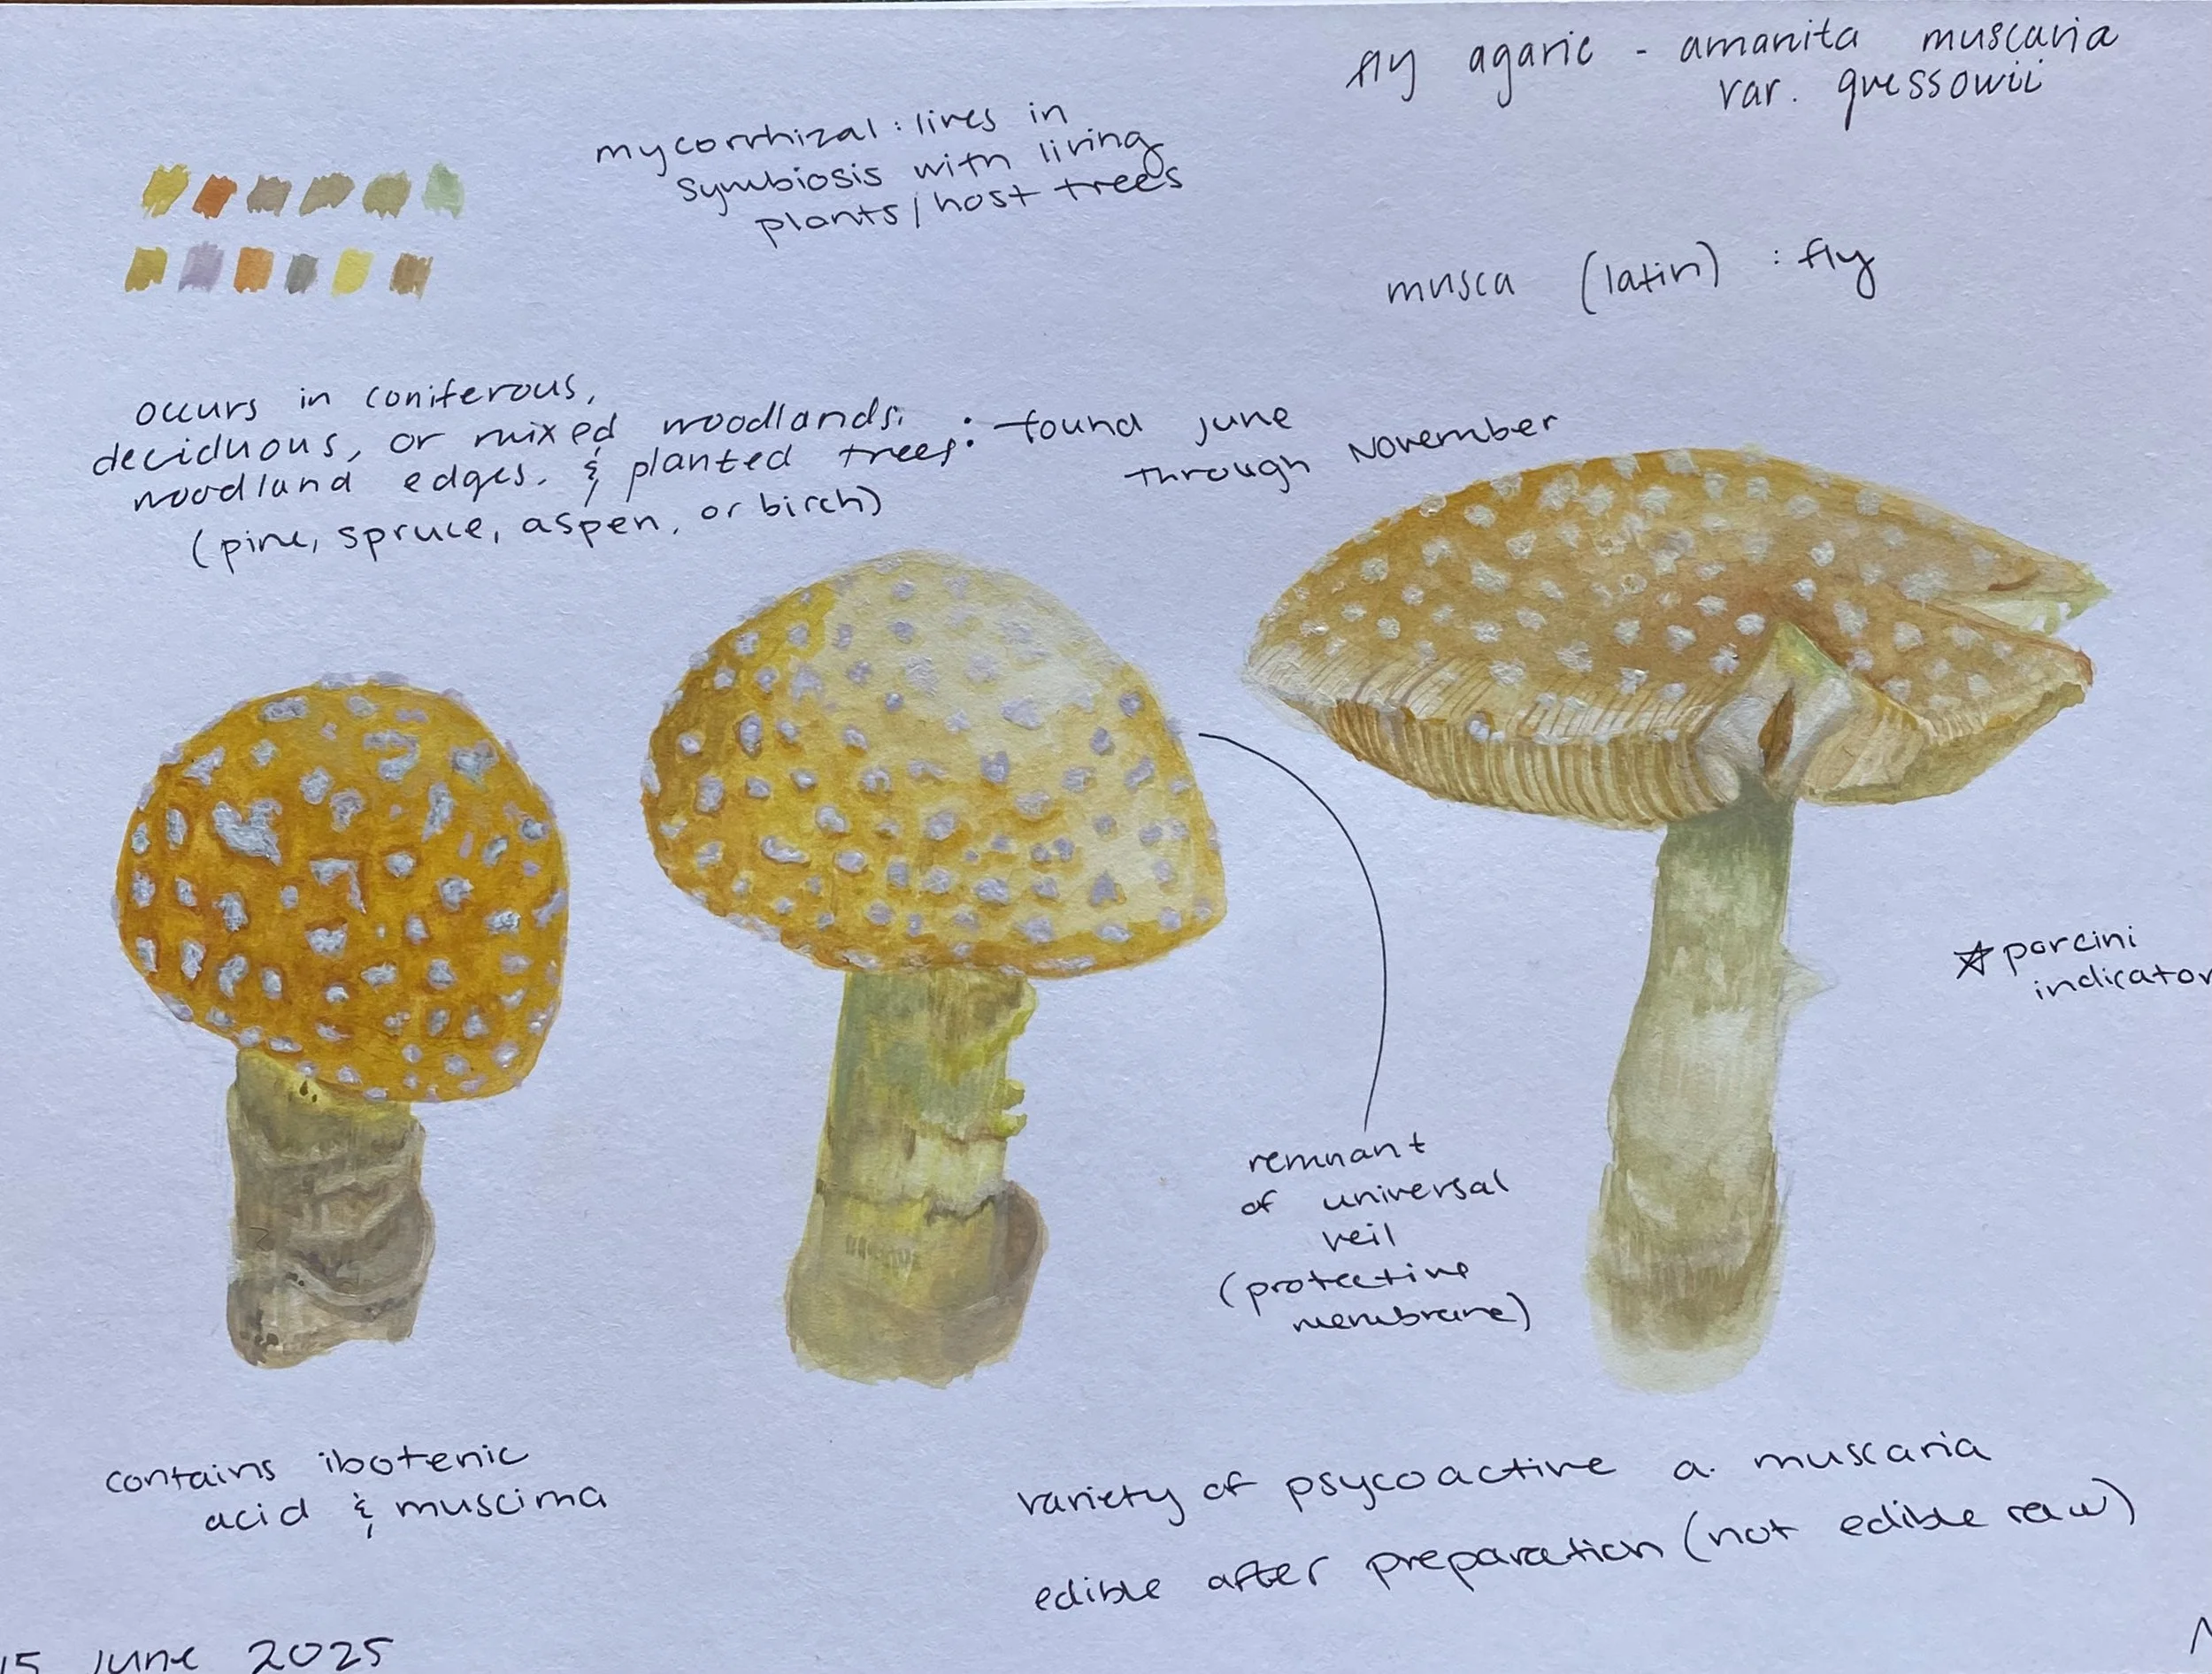 fly agaric - amanita muscaria
var. guessowii
mycorrhizal: lives in
symbiosis with living
plants/host trees
musca (latin) : fly
occurs in coniferous,
deciduous, or mixed woodlands.
woodland edges. & planted trees.
(pine, spruce, aspen, or birch)
: found june
through November
☆ porcini
indicator
remnant
of universal
veil
(protective
membrane)
contains ibotenic
acid & muscima
variety of psycoactive a. muscaria
edible after preparation (not edible raw)
15 June 2025